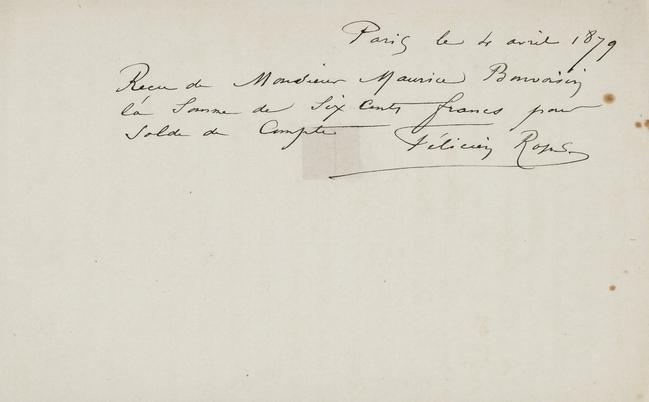 Paris le 4 avril 1879
Recu de Monsieur Maurice Bonvoisin
la Somme de Six Cents francs pour
Solde de Compte Félicien Rops